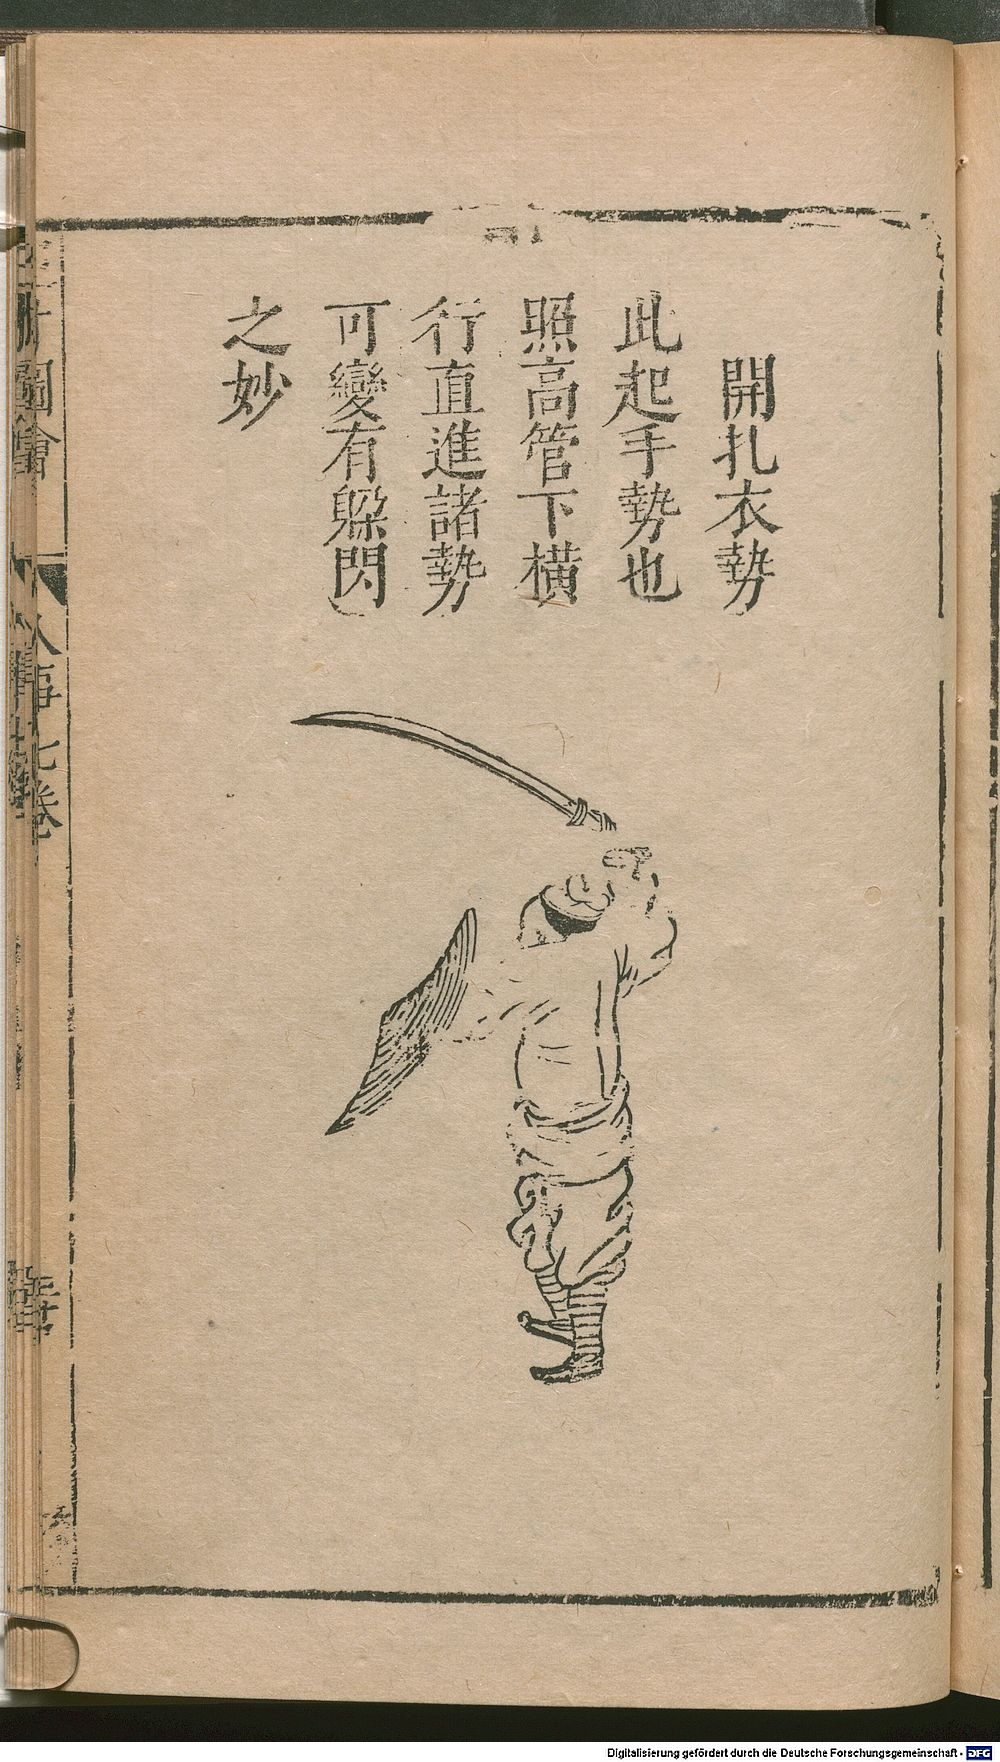 開扎衣勢
此起手勢也
照高管下橫
行直進諸勢
可變有躲閃
之妙
圖會
人事七卷
Digitalisierung gefördert durch die Deutsche Forschungsgemeinschaft - DFG